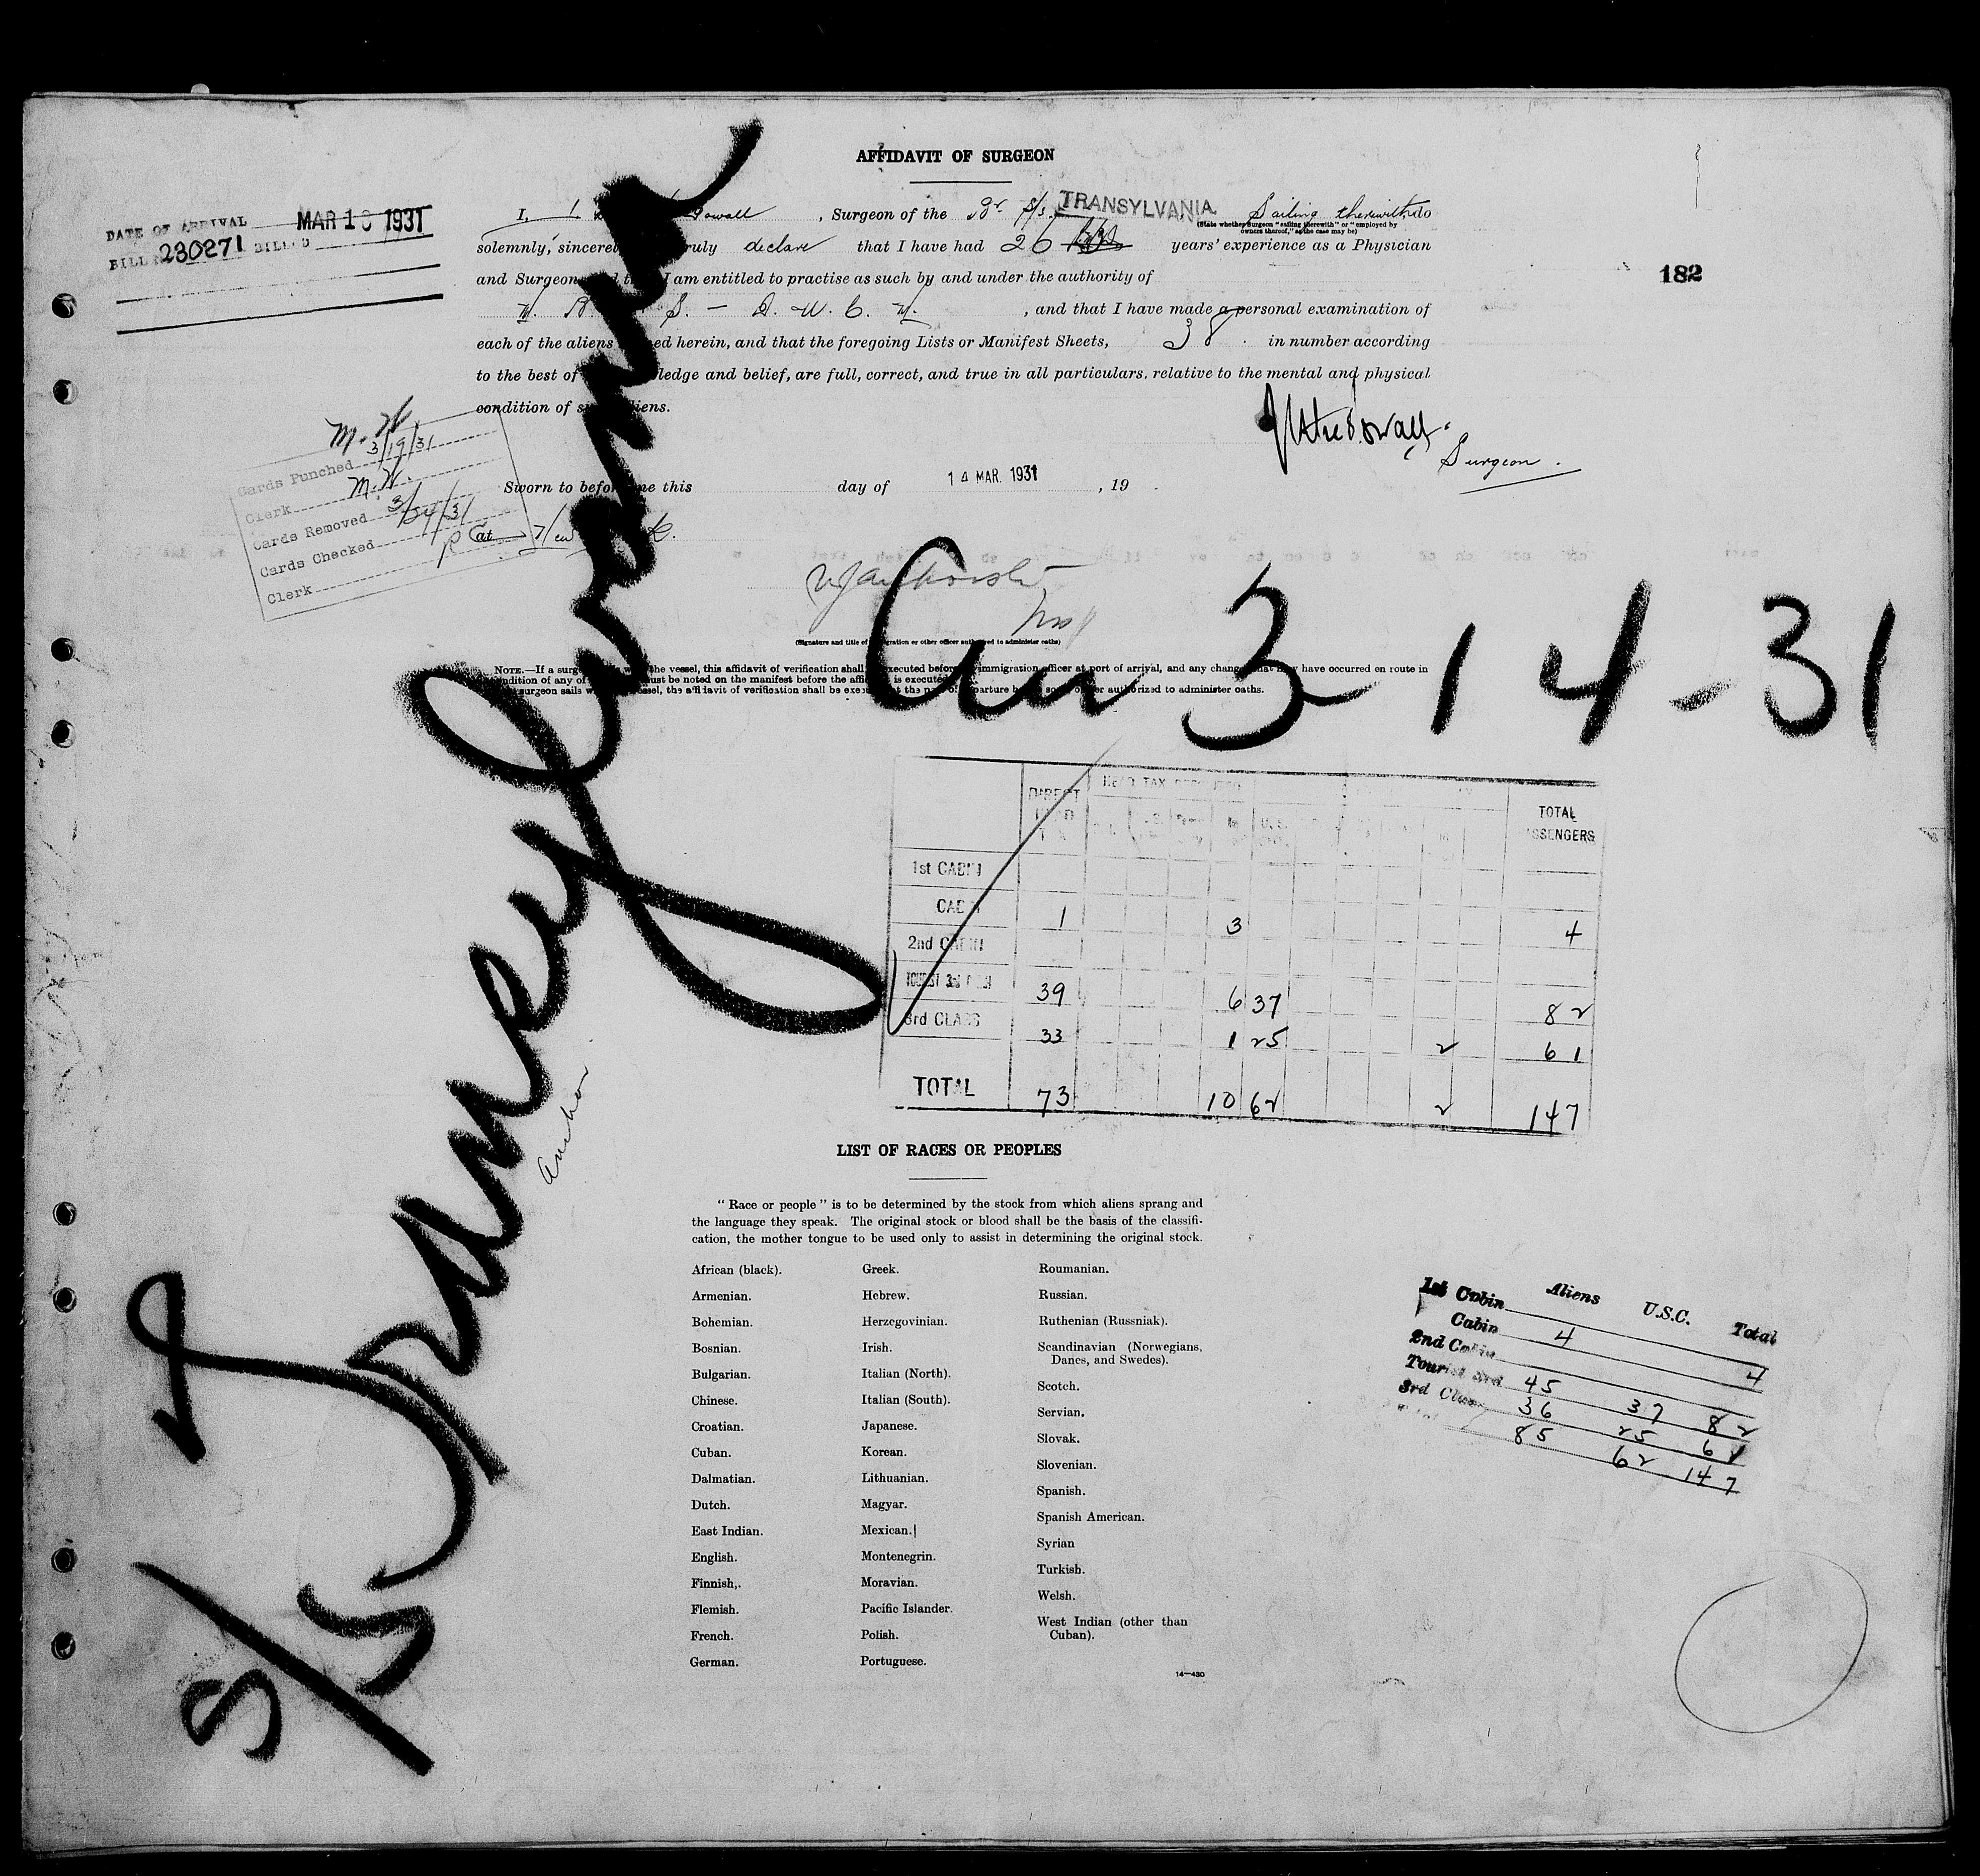 AFFIDAVIT OF SURGEON
DATE OF ARRIVAL MAR 1 1931
BILL 230271 BILLED
182
I, , Surgeon of the Br S/S. TRANSYLVANIA Sailing therewith do
(State whether Surgeon "sailing therewith" or "employed by
owners thereof," as the case may be)
solemnly, sincerel ruly declare that I have had 26 years' experience as a Physician
and Surgeon I am entitled to practise as such by and under the authority of
M. B. S. – , and that I have made a personal examination of
each of the aliens ed herein, and that the foregoing Lists or Manifest Sheets, 38 in number according
to the best of ledge and belief, are full, correct, and true in all particulars. relative to the mental and physical
condition of iens.
Surgeon.
M. W
Cards Punched 3/19/31
Clerk M. W.
Cards Removed 3/24/31
Cards Checked R
Clerk
Sworn to before me this day of 14 MAR. 1931 , 19
at New
(Signature and title of immigration or other officer authorized to administer oaths)
NOTE.—If a surg the vessel, this affidavit of verification shall executed before immigration officer at port of arrival, and any change that may have occurred en route in
ndition of any of ust be noted on the manifest before the affi is executed
surgeon sails w ssel, the affidavit of verification shall be exec t the p of departure b so er authorized to administer oaths.
S/S Transylvania
Anchor
Arr 3-14-31
DIRECT HEAD TAX
HEAD TAX
U.S.
TOTAL PASSENGERS
1st CABIN
CABIN 1 3 4
2nd CABIN
TOURIST 3rd 39 6 37 82
3rd CLASS 33 1 25 2 61
TOTAL 73 10 62 2 147
LIST OF RACES OR PEOPLES
"Race or people" is to be determined by the stock from which aliens sprang and
the language they speak. The original stock or blood shall be the basis of the classifi-
cation, the mother tongue to be used only to assist in determining the original stock.
African (black).
Armenian.
Bohemian.
Bosnian.
Bulgarian.
Chinese.
Croatian.
Cuban.
Dalmatian.
Dutch.
East Indian.
English.
Finnish,.
Flemish.
French.
German.
Greek.
Hebrew.
Herzegovinian.
Irish.
Italian (North).
Italian (South).
Japanese.
Korean.
Lithuanian.
Magyar.
Mexican.
Montenegrin.
Moravian.
Pacific Islander.
Polish.
Portuguese.
Roumanian.
Russian.
Ruthenian (Russniak).
Scandinavian (Norwegians,
Danes, and Swedes).
Scotch.
Servian.
Slovak.
Slovenian.
Spanish.
Spanish American.
Syrian
Turkish.
Welsh.
West Indian (other than
Cuban).
14—430
Aliens U.S.C. Total
1st Cabin
Cabin 4 4
2nd Cabin
Tourist 3rd 45 37 82
3rd Class 36 25 61
85 62 147